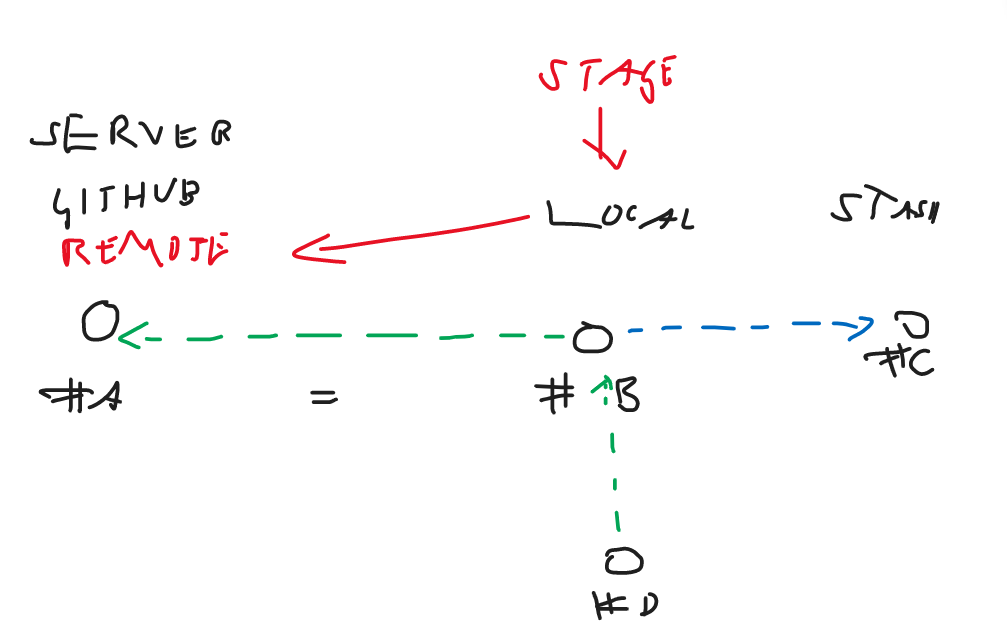 STAGE
SERVER
GITHUB
REMOTE
LOCAL
STASH
#A = # B
#C
#D